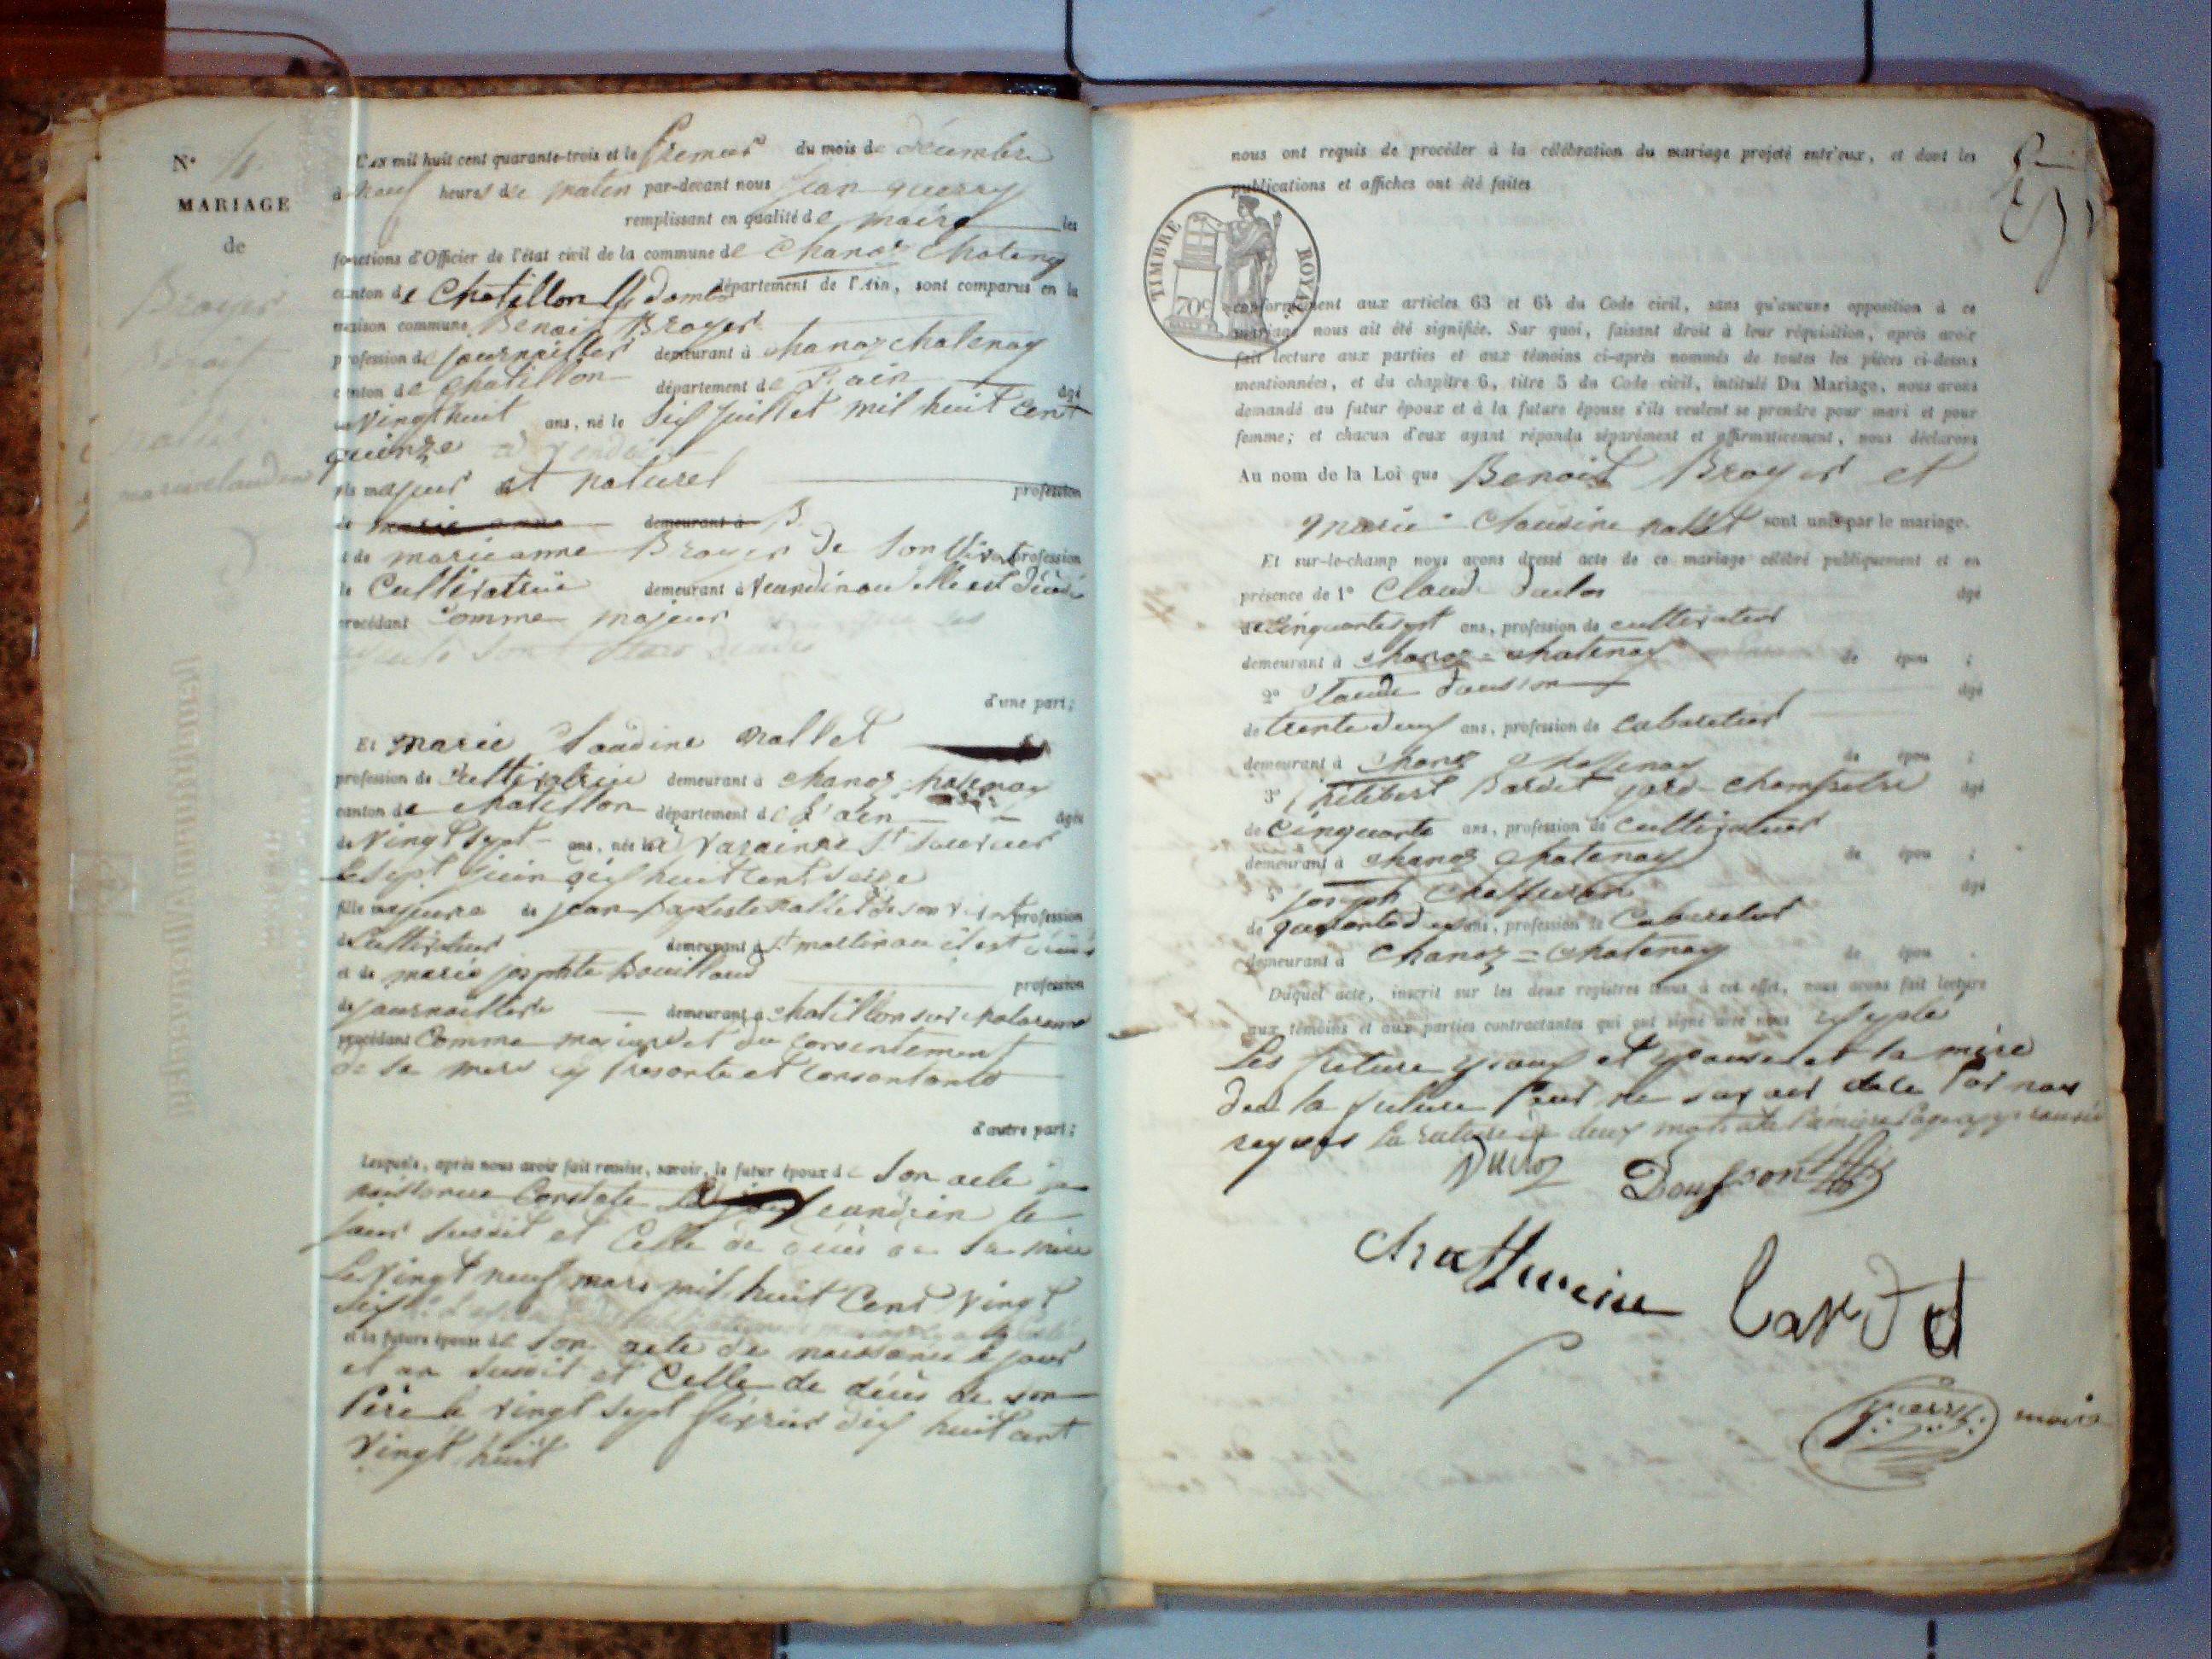 N° 4
MARIAGE
de
Broyer
Benoit
et
mallet
marie claudine
L'an mil huit cent quarante-trois et le premier du mois de décembre
à neuf heures de matin par-devant nous Jean guerry
remplissant en qualité de maire les
fonctions d'Officier de l'état civil de la commune de Chanoz Chatenay
canton de Chatillon les dombes département de l'Ain, sont comparus en la
maison commune Benoit Broyer
profession de journailler demeurant à chanoz chatenay
canton de chatillon département de l'ain âgé
de Vingt huit ans, né le six juillet mil huit cent
quinze
fils majeur et naturel profession
de marie anne demeurant à B.
et de marie anne Broyer de son Vivant profession
de Cultivatrice demeurant à Veandin ou elle est décédé
procédant comme majeur
d'une part;
Et marie Claudine mallet
profession de cultivatrice demeurant à chanoz chatenay
canton de chatillon département de l'ain âgée
de Vingt sept ans, née à Varainne St Sauveur
Le sept juin dix huit cent seize
fille majeure de jean Baptiste mallet de son vivant profession
de Cultivateur demeurant à St martin ou il est décédé
et de marie josephte Bouillaud profession
de journaillere demeurant à chatillon sur chalaronne
procédant Comme majeure et du consentement
de sa mere cy presente et consentante
d'autre part;
Lesquels, après nous avoir fait remise, savoir, le futur époux de Son acte de
naissance Constate Veandin le
jour susdit et Celle de décès de sa mère
Le Vingt neuf mars mil huit Cent Vingt
six
et la future épouse de son acte de naissance le jour
et an susdit et Celle de décès de son
Père le vingt sept février dix huit cent
Vingt huit
nous ont requis de procéder à la célébration du mariage projeté entr'eux, et dont les
publications et affiches ont été faites
TIMBRE ROYAL
70c
conformément aux articles 63 et 64 du Code civil, sans qu'aucune opposition à ce
mariage nous ait été signifiée. Sur quoi, faisant droit à leur réquisition, après avoir
fait lecture aux parties et aux témoins ci-après nommés de toutes les pièces ci-dessus
mentionnées, et du chapitre 6, titre 5 du Code civil, intitulé Du Mariage, nous avons
demandé au futur époux et à la future épouse s'ils veulent se prendre pour mari et pour
femme; et chacun d'eux ayant répondu séparément et affirmativement, nous déclarons
Au nom de la Loi que Benoit Broyer et
marie Claudine mallet sont unis par le mariage.
Et sur-le-champ nous avons dressé acte de ce mariage célébré publiquement et en
présence de 1° Claude Duclos âgé
de Cinquante sept ans, profession de cultivateur
demeurant à chanoz = chatenay de épou ;
2° Claude Dousson âgé
de trente deux ans, profession de cabaretier
demeurant à Chanoz Chatenay de épou ;
3° Philibert Bardet garde champetre âgé
de Cinquante ans, profession de cultivateur
demeurant à chanoz chatenay de épou ;
joseph âgé
de quarante deux ans, profession de Cabaretier
demeurant à Chanoz = chatenay de épou .
Duquel acte, inscrit sur les deux registres tenus à cet effet, nous avons fait lecture
aux témoins et aux parties contractantes qui ont signé avec nous excepté
Les future époux et épouse et la mère
de la future Pour ne savoir de ce Par nous
requis la rature de deux mots à la première page approuvée
Duclos
Dousson
Bardet
guerry maire